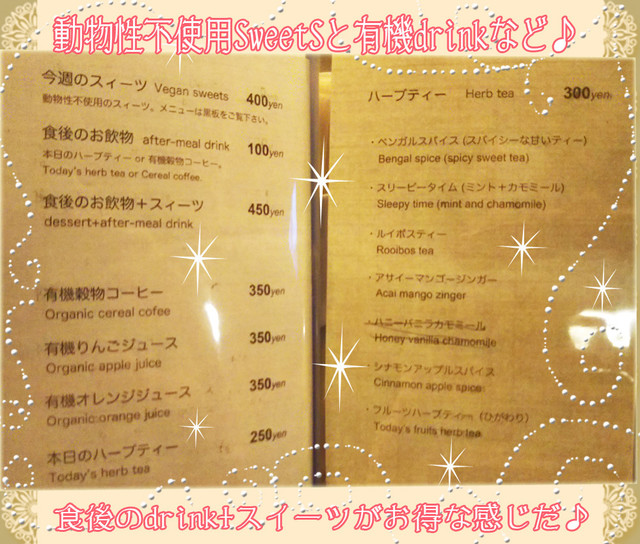 動物性不使用SweetSと有機drinkなど♪
今週のスィーツ Vegan sweets 400yen
動物性不使用のスィーツ。メニューは黒板をご覧下さい。
食後のお飲物 after-meal drink 100yen
本日のハーブティー or 有機穀物コーヒー。
Today's herb tea or Cereal coffee.
食後のお飲物+スィーツ 450yen
dessert+after-meal drink
有機穀物コーヒー 350yen
Organic cereal cofee
有機りんごジュース 350yen
Organic apple juice
有機オレンジジュース 350yen
Organic orange juice
本日のハーブティー 250yen
Today's herb tea
ハーブティー Herb tea 300yen
・ベンガルスパイス (スパイシーな甘いティー)
Bengal spice (spicy sweet tea)
・スリーピータイム (ミント+カモミール)
Sleepy time (mint and chamomile)
・ルイボスティー
Rooibos tea
・アサイーマンゴージンガー
Acai mango zinger
・ハニーバニラカモミール
Honey vanilla chamomile
・シナモンアップルスパイス
Cinnamon apple spice
・フルーツハーブティー (ひがわり)
Today's fruits herb tea
食後のdrink+スイーツがお得な感じだ♪